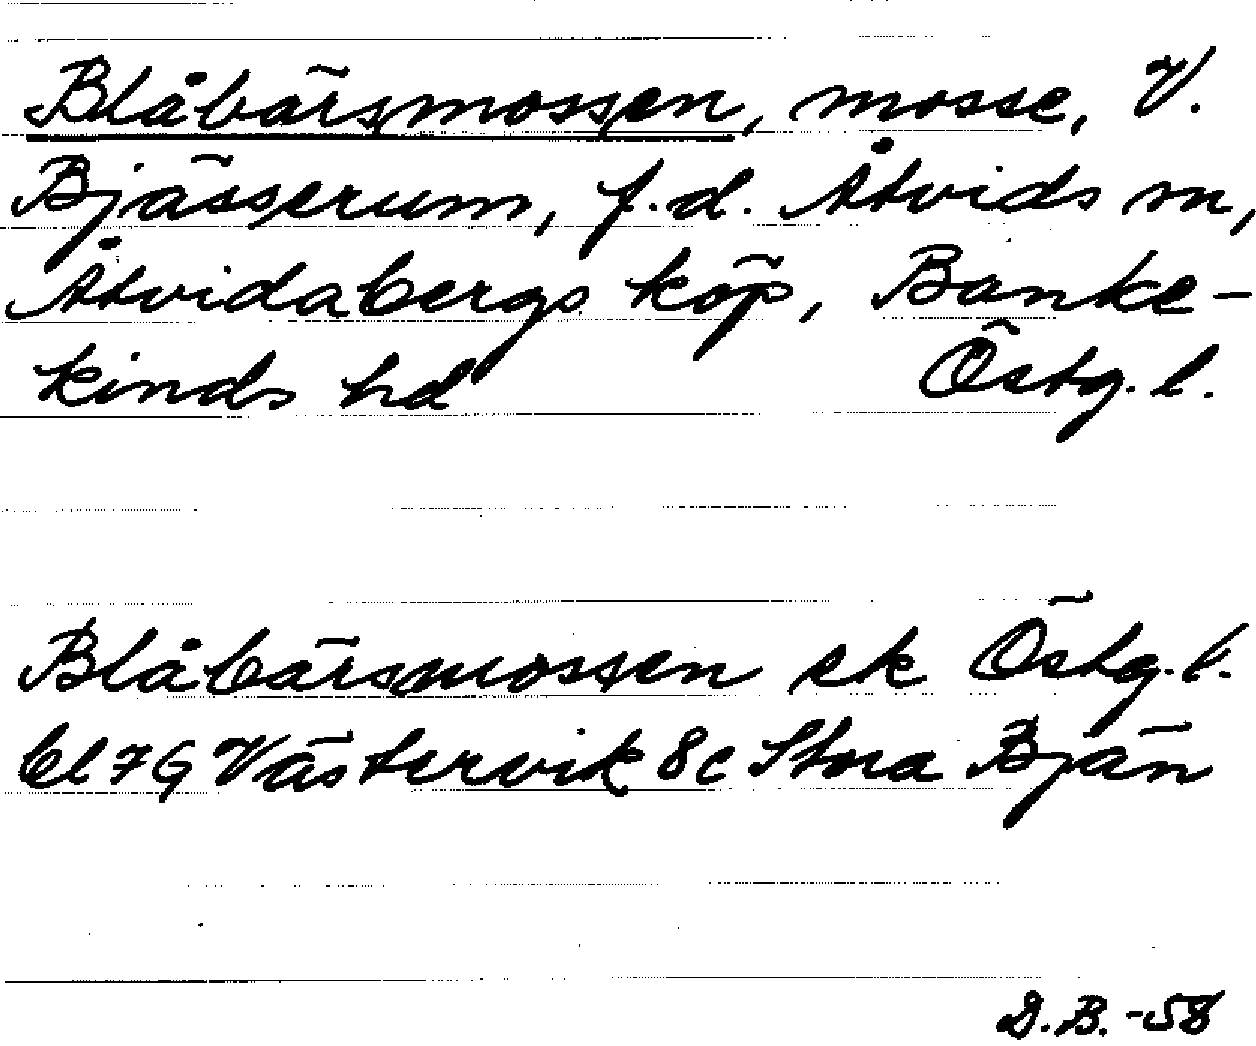 Blåbärsmossen, mosse, V.
Bjässerum, f.d. Åtvids sn,
Åtvidabergs köp, Banke-
kinds hd Östg. l.
Blåbärsmossen ek Östg. l.
bl 7G Västervik 8c Stora Bjän
D.B. -58